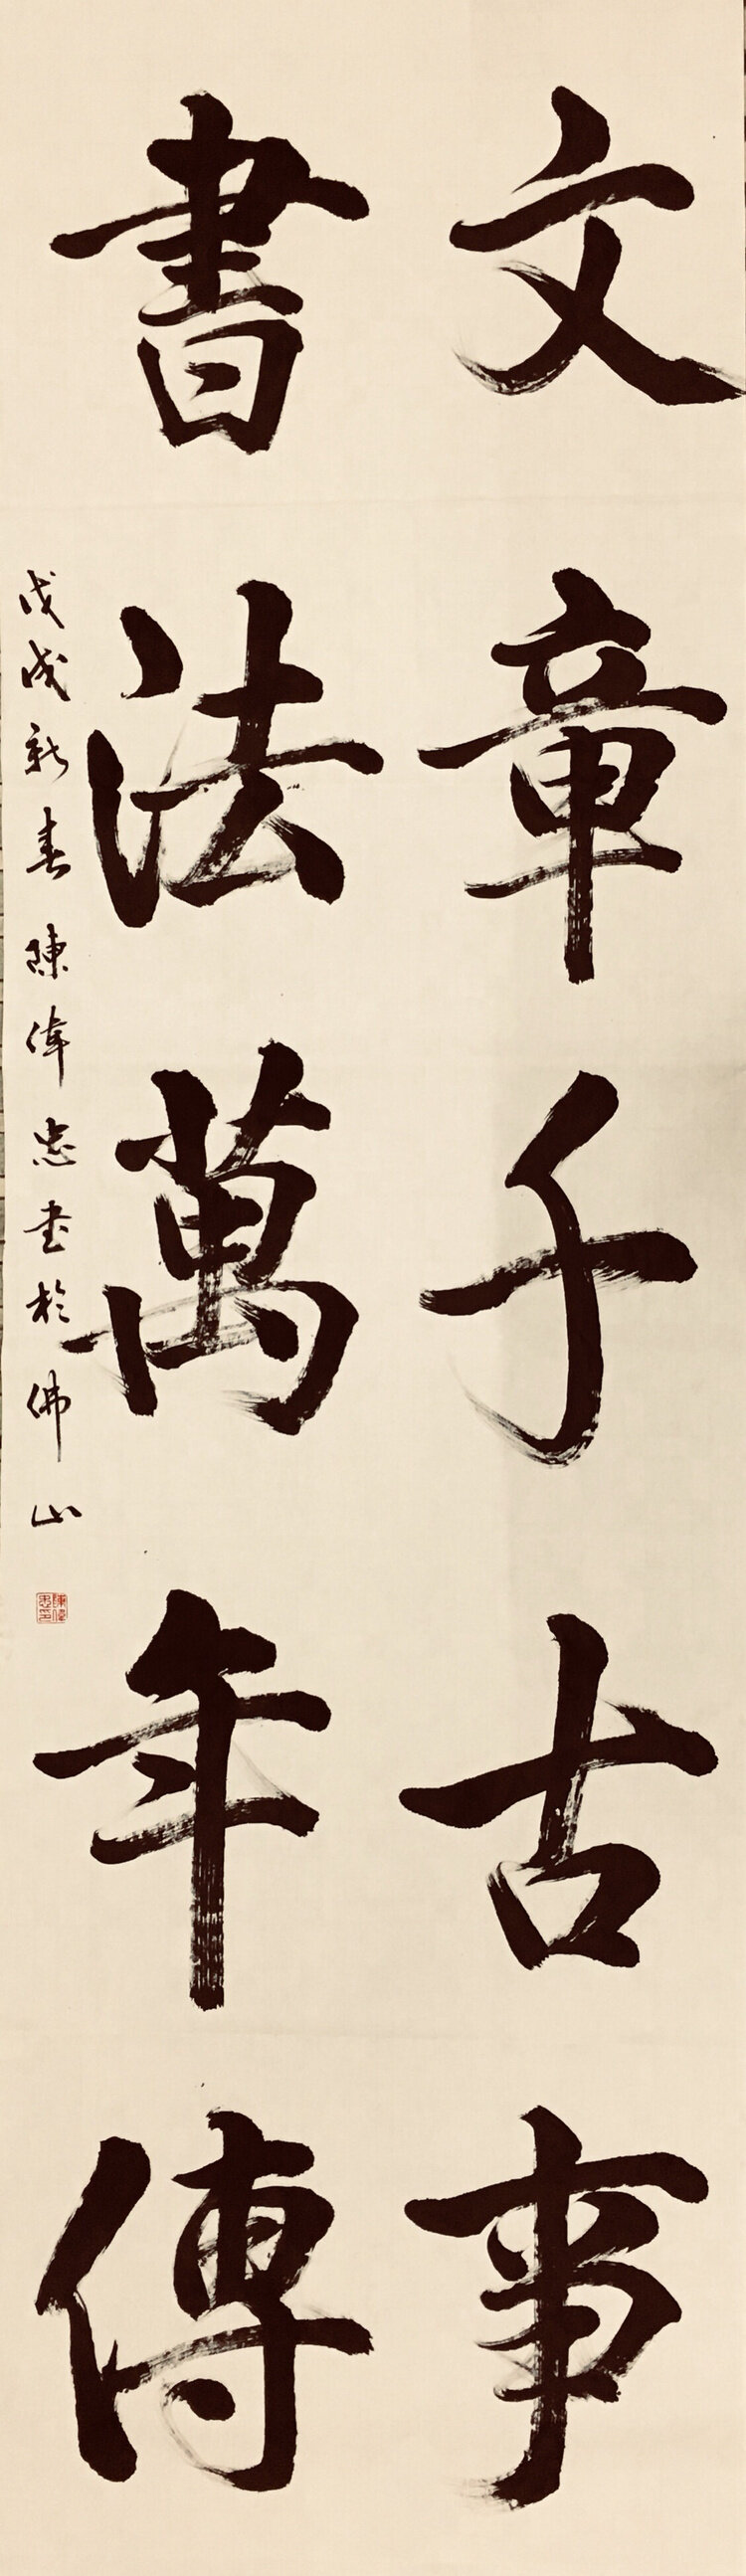 文章千古事
書法萬年傳
戊戌新春陳偉忠書於佛山